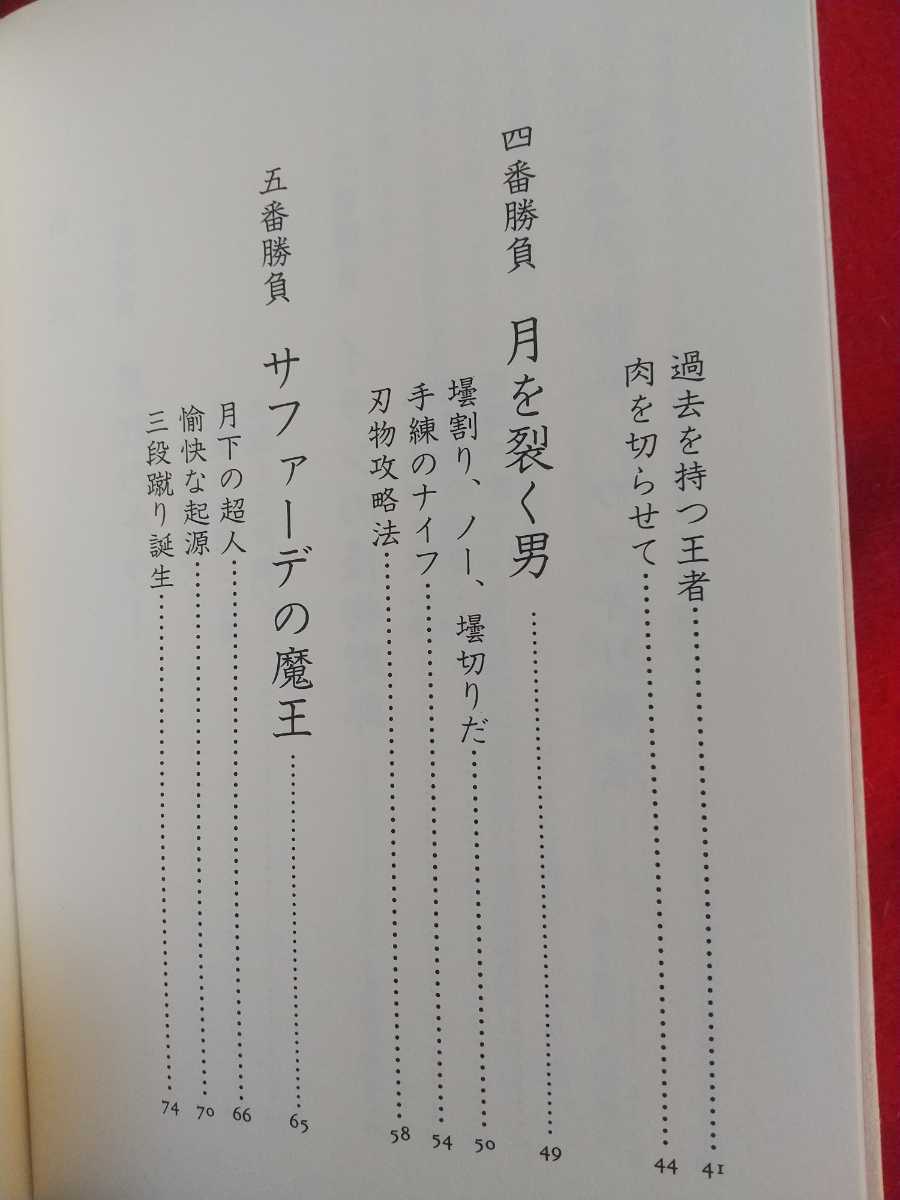 過去を持つ王者……41
肉を切らせて……44
四番勝負 月を裂く男……49
壜割り、ノー、壜切りだ……50
手練のナイフ……54
刃物攻略法……58
五番勝負 サファーデの魔王……65
月下の超人……66
愉快な起源……70
三段蹴り誕生……74